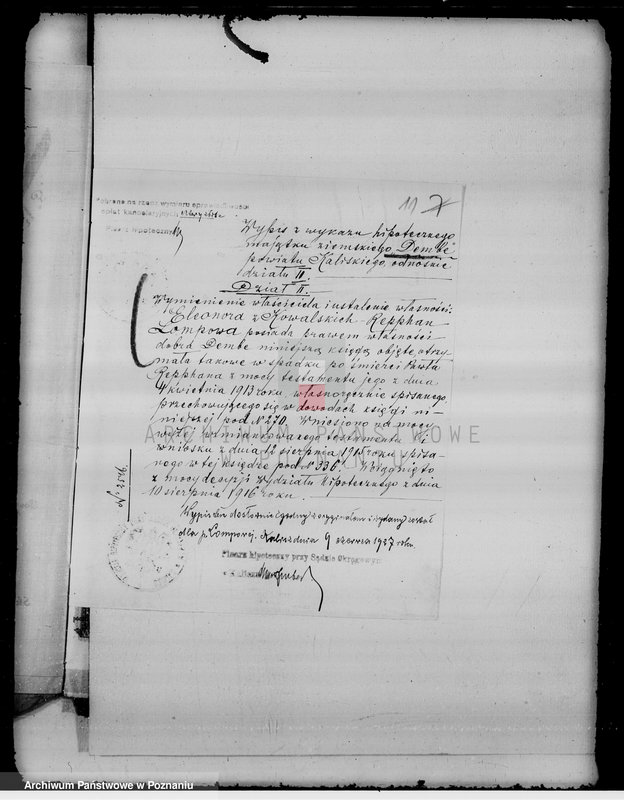 11
Pobrano na rzecz wymiaru sprawiedliwości
opłat kancelaryjnych
Pisarz Hipoteczny
Wypis z wykazu hipotecznego
majątku ziemskiego "Dembe"
powiatu Kaliskiego, odnośnie
działu II.
Dział II.
Wymienienie właściciela i ustalenie własności:
Eleonora z Kowalskich - Repphan -
Lompowa posiada prawem własności
dobra Dembe niniejszą księgą objęte, otrzy-
mała takowe w spadku po śmierci Pawła
Repphana z mocy testamentu jego z dnia
4 kwietnia 1913 roku, własnoręcznie spisanego
przechowującego się w dowodach księgi ni-
niejszej pod № 270. Wniesiono na mocy
wyżej wzmiankowanego testamentu i
wniosku z dnia 12 sierpnia 1915 roku spisa-
nego w tej księdze pod № 336. Wciągnięto
z mocy decyzji wydziału Hipotecznego z dnia
10 sierpnia 1916 roku.
Wypis ten dosłownie zgodny z oryginałem i wydany został
dla p. Lompowej. Kalisz dnia 9 czerwca 1927 roku.
Pisarz hipoteczny przy Sądzie Okręgowym
w Kaliszu
ARCHIWUM PAŃSTWOWE
W POZNANIU
Archiwum Państwowe w Poznaniu